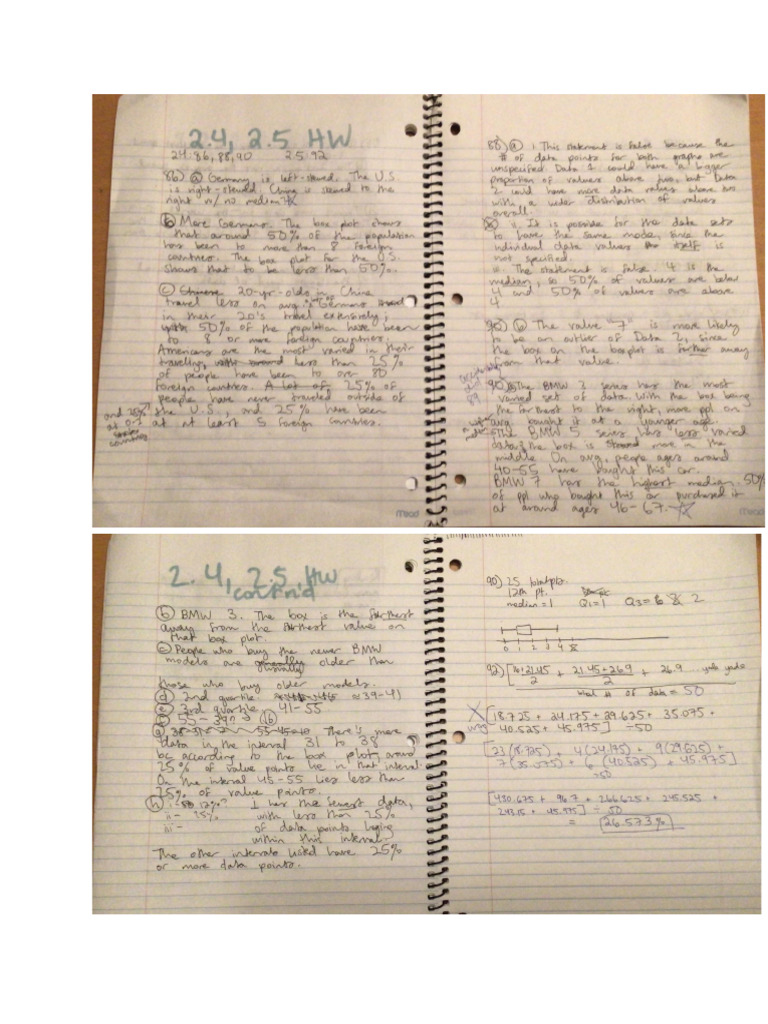 2.4, 2.5 HW
2.4: 86, 88, 90 2.5: 92
86) a Germany is left-skewed. The U.S.
is right-skewed, China is skewed to the
right w/ no median
b More Germans. The box plot shows
that around 50% of the population
has been to more than 8 foreign
countries. The box plot for the U.S.
shows that to be less than 50%.
c Chinese 20-yr-olds in China
travel less on avg. Germans
in their 20's travel extensively;
50% of the population have been
to 8 or more foreign countries.
Americans are the most varied in their
traveling, less than 25%
of people have been to over
foreign countries. A lot of, 25% of
people have never traveled outside of
the U.S., and 25% have been
at at least 5 foreign countries.
and 25%
at 0-2
countries
88) a i This statement is false because the
# of data points for both graphs are
unspecified. Data 1 could have a bigger
proportion of values above two, but Data
2 could have more data values above two
with a wider distribution of values
overall.
ii. It is possible for the data sets
to have the same mode, since the
individual data values is
not specified.
iii. The statement is false. 4 is the
median, so 50% of values are below
4 and 50% of values are above
4.
b The value "7" is more likely
to be an outlier of Data 2, since
the box on the boxplot is further away
from that value.
89
90 a The BMW 3 series has the most
varied set of data. With the box being
the farthest to the right, more ppl on
avg. bought it at a younger age.
The BMW 5 series has less varied
data & the box is more in the
middle. On avg, people ages around
40-55 have bought this car.
BMW 7 has the highest median. 50%
of ppl who bought this car purchased it
at around ages 46-67.
Mead
Mead
2.4, 2.5 HW
cont'n'd
b BMW 3. The box is the farthest
away from the farthest value on
that box plot.
c People who buy the newer BMW
models are usually older than
those who buy older models.
d 2nd quartile ≈39-41
e 3rd quartile 41-55
f 55-39 = 16
g There's more
data in the interval 31 to 38
bc according to the box plot, around
25% of value points lie in that interval.
On the interval 45-55 lies less than
25% of value points.
h i- I has the fewest data,
ii- 25% with less than 25%
iii- of data points laying
within this interval.
The other intervals listed have 25%
or more data points.
90) 25 points.
12th pt.
median=1 Q1=1 Q3= 2
0 1 2 3 4
92)
2 2
total # of data = 50
wrong
[18.725 + 24.175 + 29.625 + 35.075 +
40.525 + 45.975] ÷50
[23(18.725) + 4(24.175) + 9(29.625) +
7(35.075) + 6(40.525) + 45.975]
÷50
[430.675 + 96.7 + 266.625 + 245.525 +
243.15 + 45.975] ÷ 50
= 26.573%